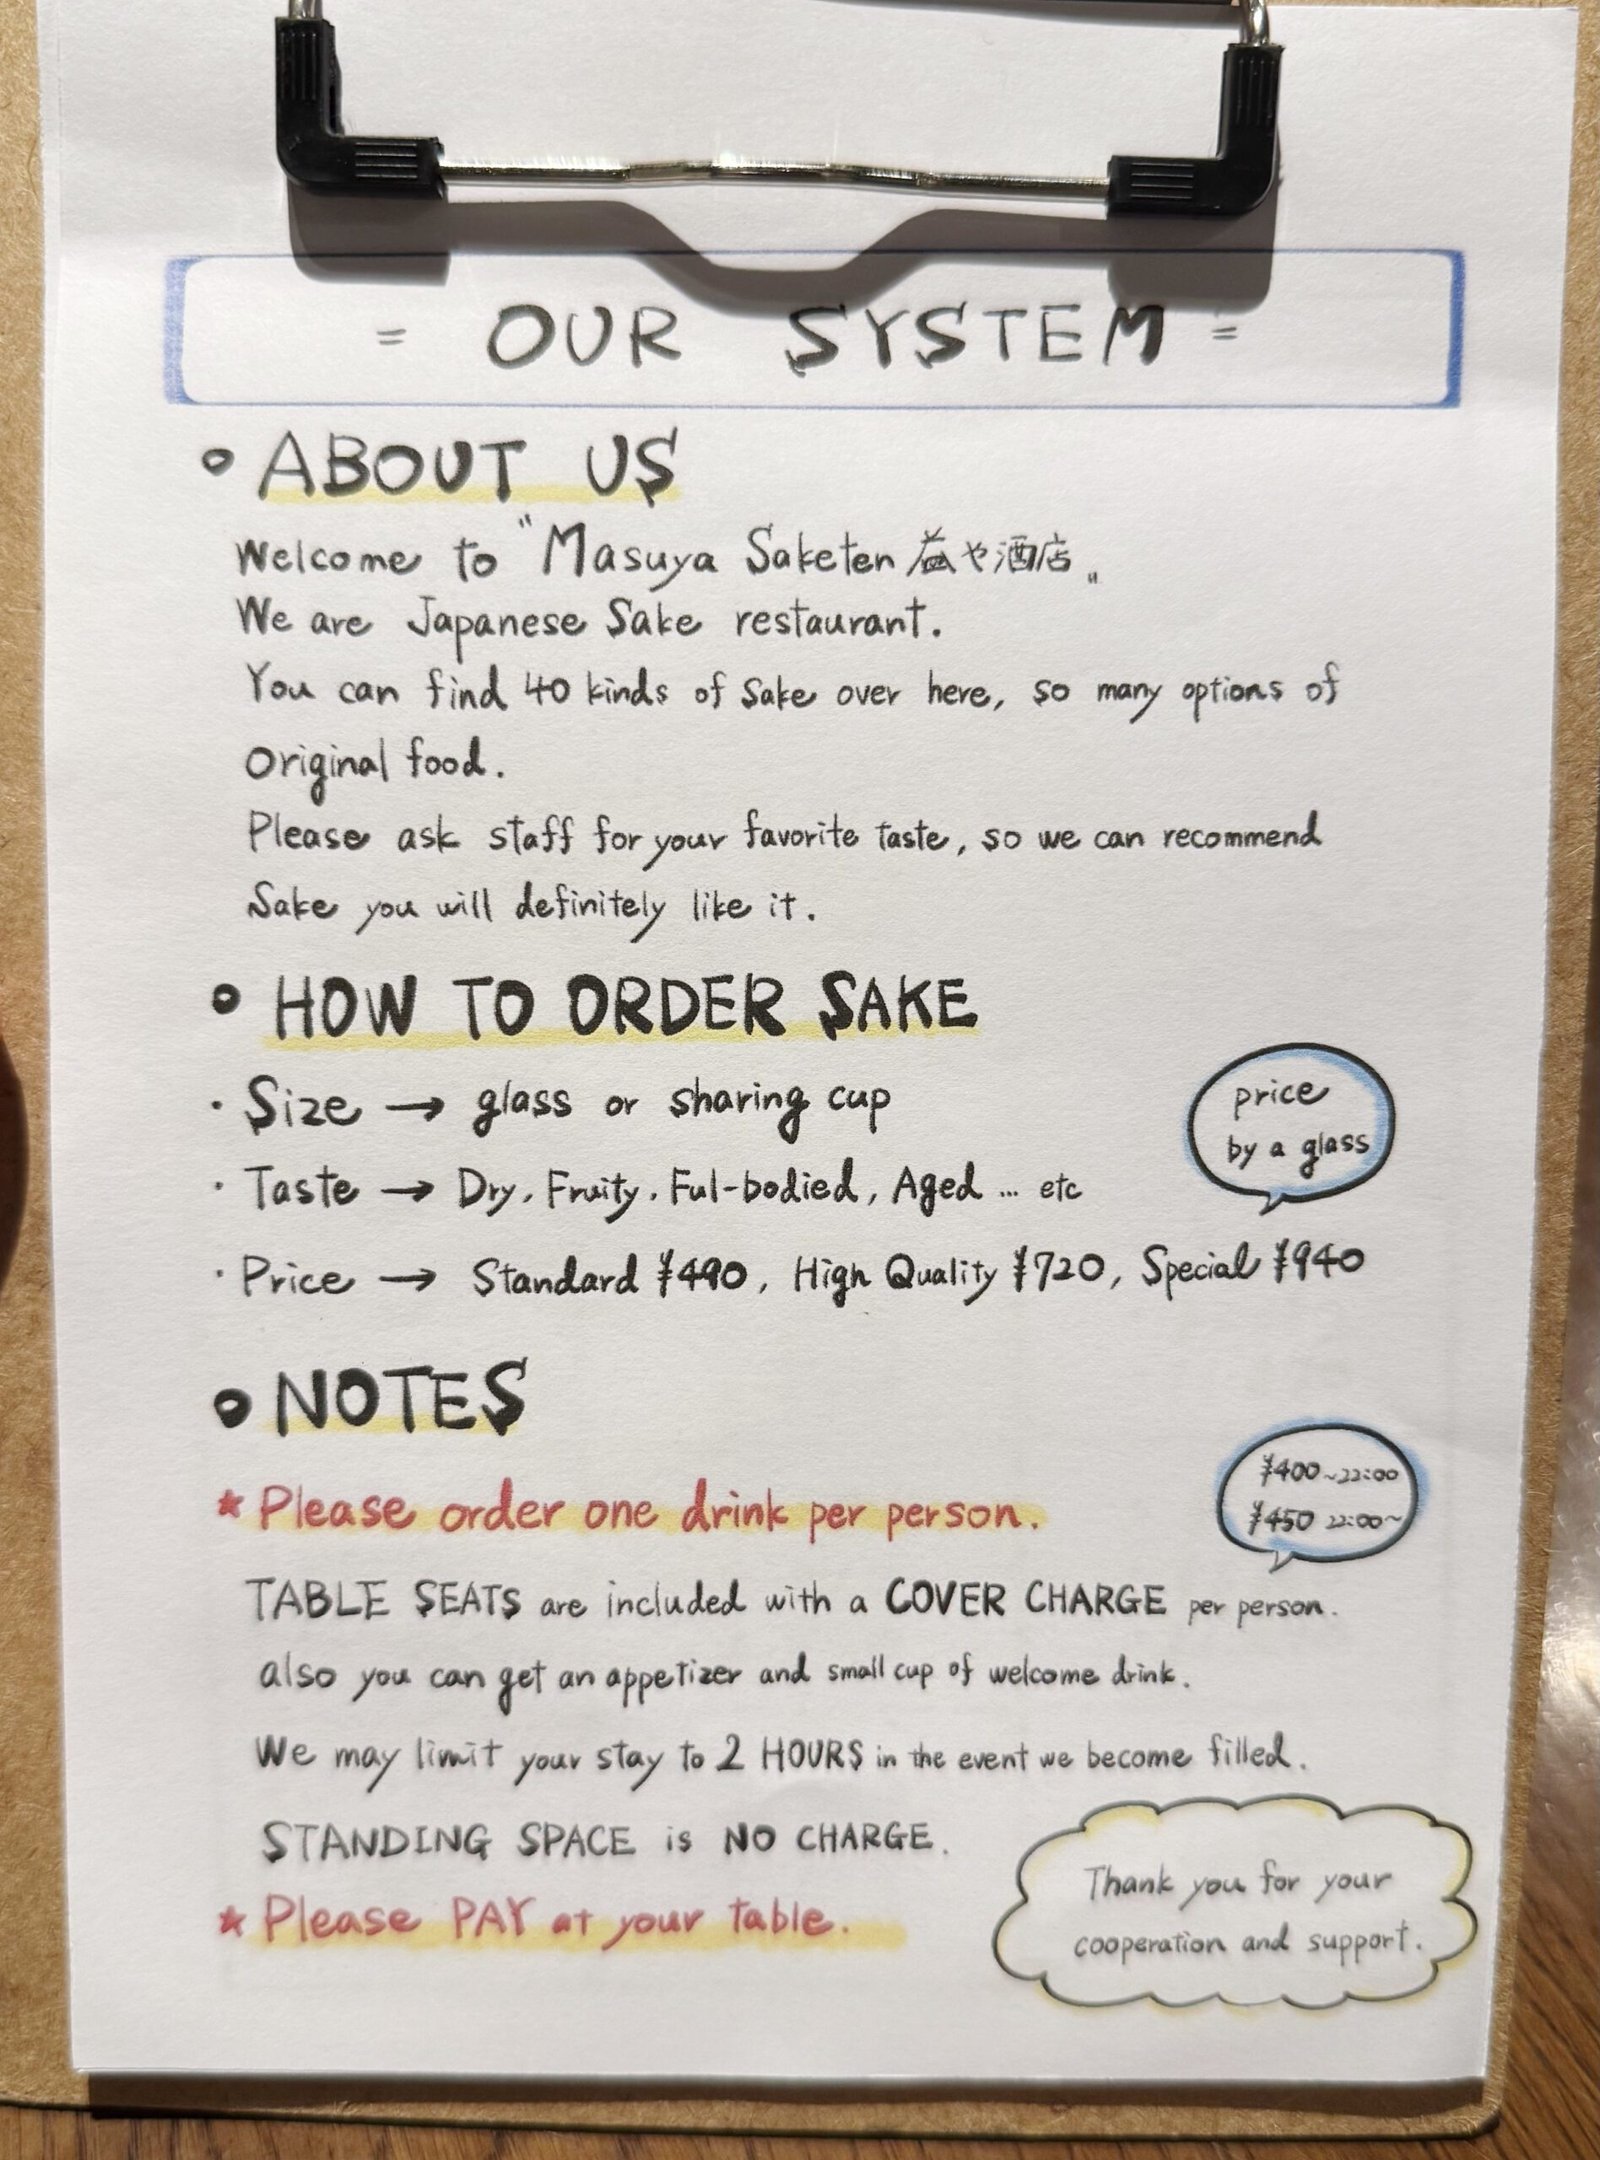 = OUR SYSTEM =
• ABOUT US
Welcome to "Masuya Saketen 益や酒店"
We are Japanese Sake restaurant.
You can find 40 kinds of Sake over here, so many options of
Original food.
Please ask staff for your favorite taste, so we can recommend
Sake you will definitely like it.
• HOW TO ORDER SAKE
· Size → glass or sharing cup
price
by a glass
· Taste → Dry, Fruity, Ful-bodied, Aged ... etc
· Price → Standard ¥490, High Quality ¥720, Special ¥940
• NOTES
¥400 ~22:00
¥450 22:00~
★ Please order one drink per person.
TABLE SEATS are included with a COVER CHARGE per person.
also you can get an appetizer and small cup of welcome drink.
We may limit your stay to 2 HOURS in the event we become filled.
STANDING SPACE is NO CHARGE.
★ Please PAY at your table.
Thank you for your
cooperation and support.